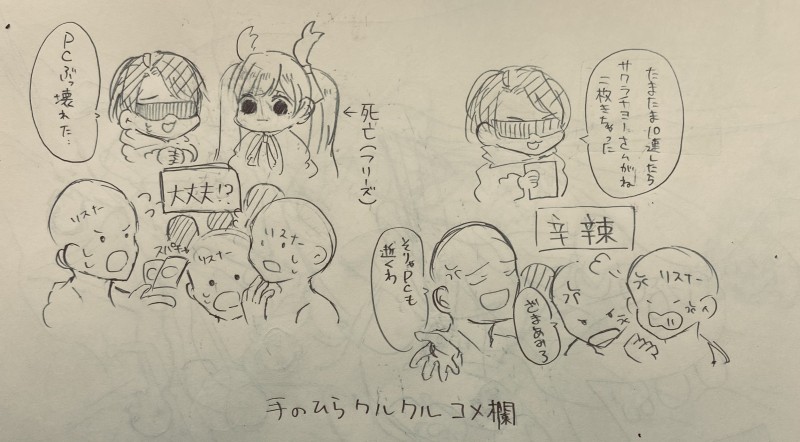 PCぶっ壊れた…
←死亡(フリーズ)
大丈夫!?
リスナー
スパチャ
リスナー
リスナー
たまたま10連したら
サクラチヨノオーさんがね
二枚きちゃった
辛辣
そりゃPCも
逝くわ
ざまあみろ
リスナー
手のひらクルクルコメ欄